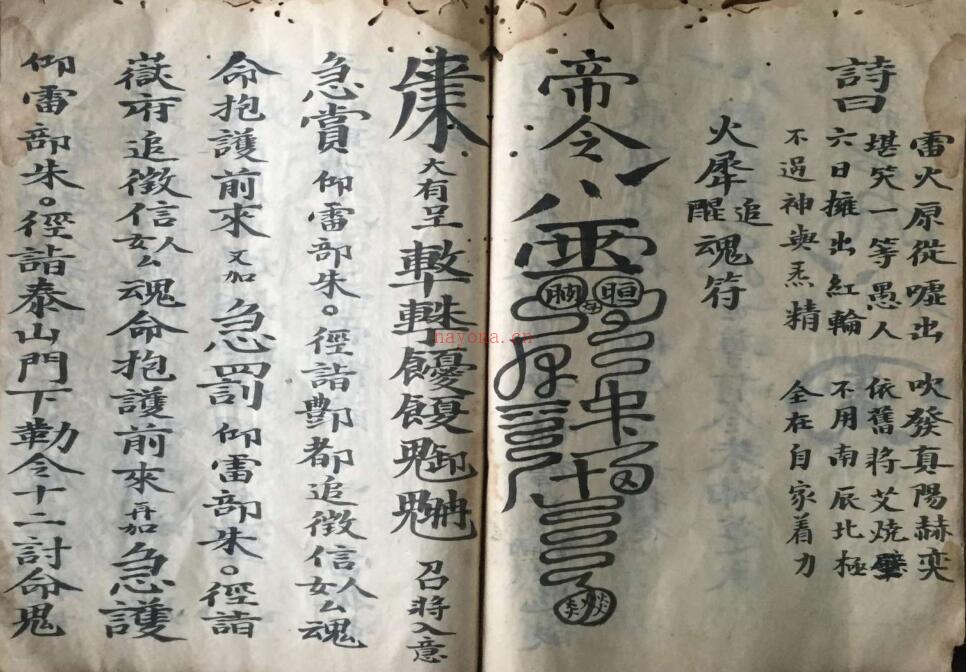 詩曰
雷火原從噓出 吹發真陽赫奕
堪笑一等愚人 依舊將艾燒
六日擁出紅輪 不用南辰北極
不過神與炁精 全在自家着力
火犀追醒魂符
帝令
大有呈 召將入意
急賞 仰雷部朱。徑詣酆都追徵信人女么魂
命抱護前來又加急罰仰雷部朱。徑詣
嶽府追徵信人女么魂命抱護前來再加急護
仰雷部朱。徑詣泰山門下勒令十二討命鬼
nayona.cn